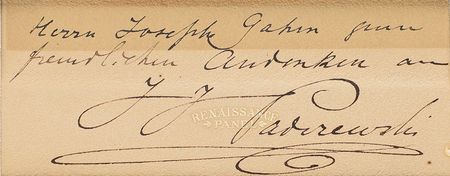 Herrn Joseph Gahm zum
freundlichen Andenken an
J J Paderewski
RENAISSANCE
PANEL